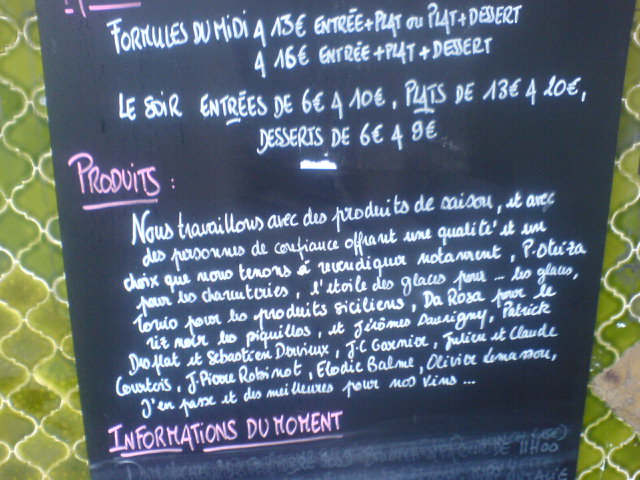 FORMULES DU MIDI A 13€ ENTRÉE+PLAT OU PLAT+DESSERT
A 16€ ENTRÉE+PLAT+DESSERT
LE SOIR ENTRÉES DE 6€ A 10€, PLATS DE 13€ A 20€,
DESSERTS DE 6€ A 9€
PRODUITS :
Nous travaillons avec des produits de saison, et avec
des personnes de confiance offrant une qualité et un
choix que nous tenons à revendiquer notamment, P. Oteiza
pour les charcuteries, l'étoile des glaces pour ... les glaces,
pour les produits siciliens, Da Rosa pour le
riz noir les piquillos, et Jérômes Sauvigny, Patrick
et Sébastien Dervieux, J.C Garnier, Julien et Claude
Courtois, J. Pierre Robinot, Elodie Balme, Olivier Lemasson,
J'en passe et des meilleures pour nos vins ...
INFORMATIONS DU MOMENT
11H00